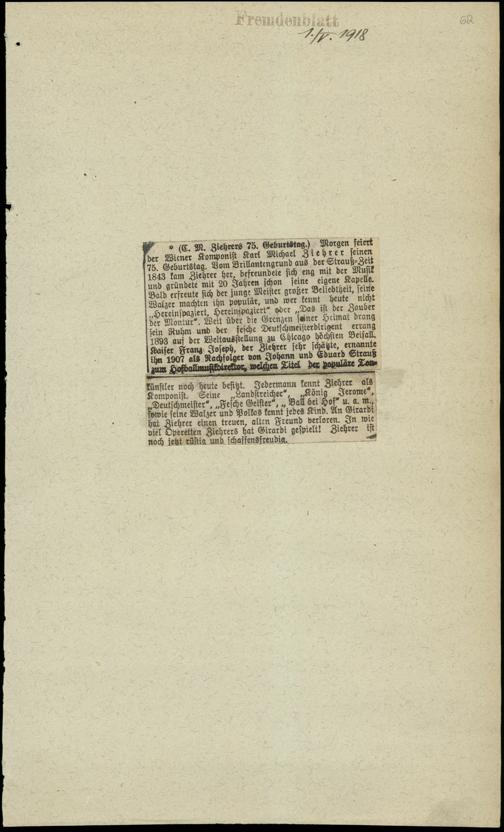 Fremdenblatt
62
1./V. 1918
* (C. M. Ziehrers 75. Geburtstag.) Morgen feiert
der Wiener Komponist Karl Michael Ziehrer seinen
75. Geburtstag. Vom Brillantengrund aus der Strauß-Zeit
1843 kam Ziehrer her, befreundete sich eng mit der Musik
und gründete mit 20 Jahren schon seine eigene Kapelle.
Bald erfreute sich der junge Meister großer Beliebtheit, seine
Walzer machten ihn populär, und wer kennt heute nicht
„Hereinspaziert, Hereinspaziert" oder „Das ist der Zauber
der Montur". Weit über die Grenzen seiner Heimat drang
sein Ruhm und der fesche Deutschmeisterdirigent errang
1893 auf der Weltausstellung zu Chicago höchsten Beifall.
Kaiser Franz Joseph, der Ziehrer sehr schätzte, ernannte
ihn 1907 als Nachfolger von Johann und Eduard Strauß
zum Hofballmusikdirektor, welchen Titel der populäre Ton-
künstler noch heute besitzt. Jedermann kennt Ziehrer als
Komponist. Seine „Landstreicher", „König Jerome",
„Deutschmeister", „Fesche Geister", „Ball bei Hof" u. a. m.,
sowie seine Walzer und Polkas kennt jedes Kind. An Girardi
hat Ziehrer einen treuen, alten Freund verloren. In wie
viel Operetten Ziehrers hat Girardi gespielt! Ziehrer ist
noch jetzt rüstig und schaffensfreudig.